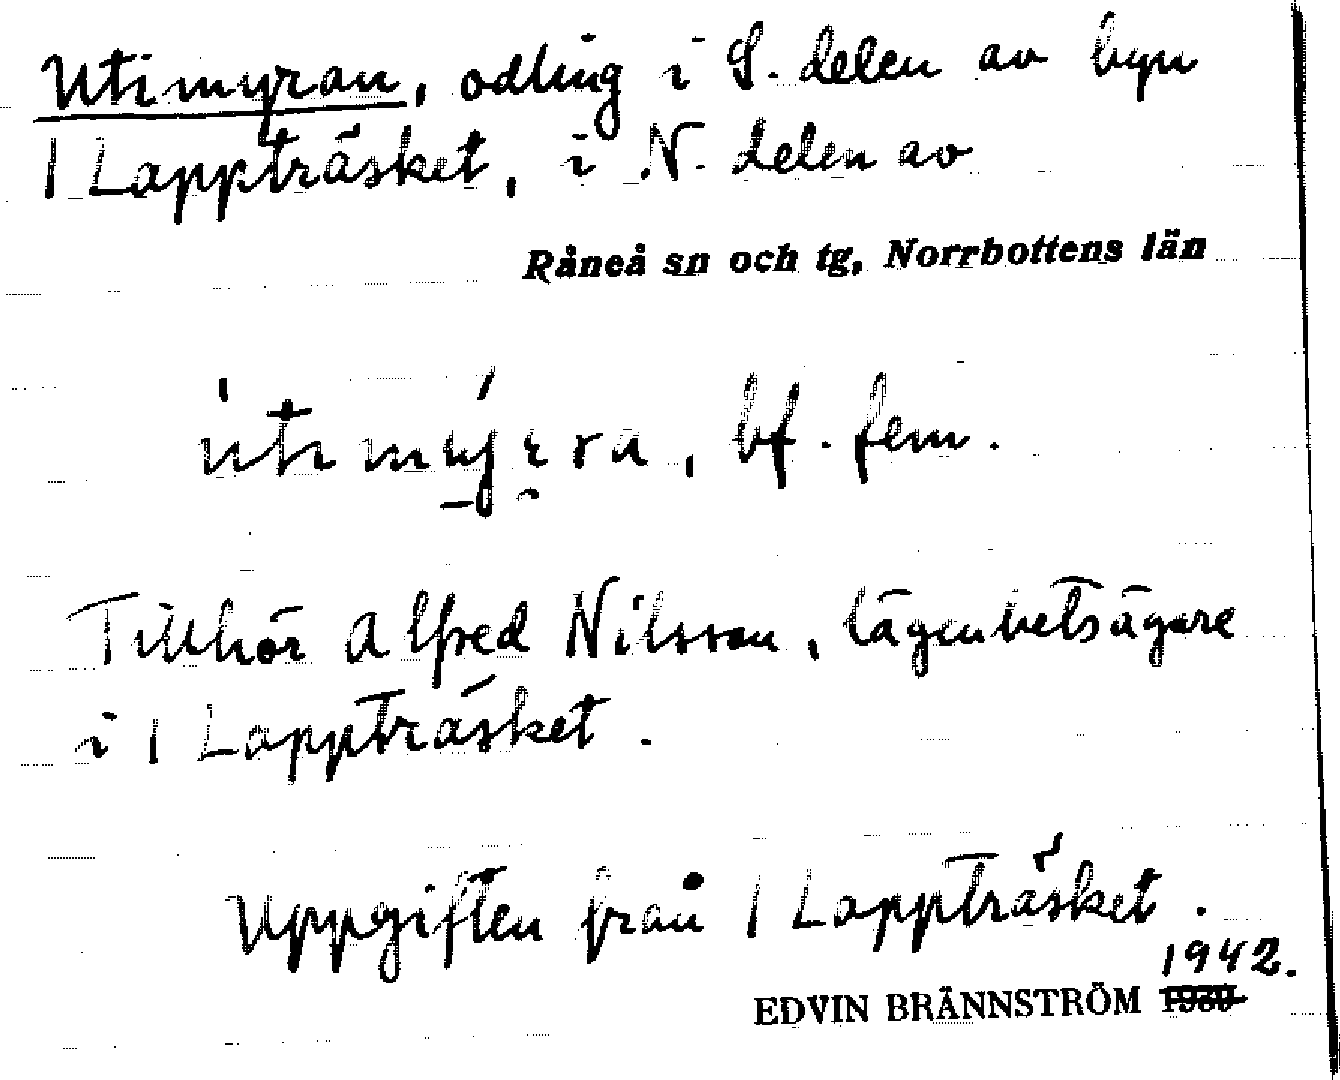 Utimyran, odling i S. delen av byn
1 Lappträsket, i N. delen av
Råneå sn och tg, Norrbottens län
bf. fem.
Tillhör Alfred Nilsson, lägenhetsägare
i 1 Lappträsket.
Uppgiften från 1 Lappträsket.
1942.
EDVIN BRÄNNSTRÖM 1930